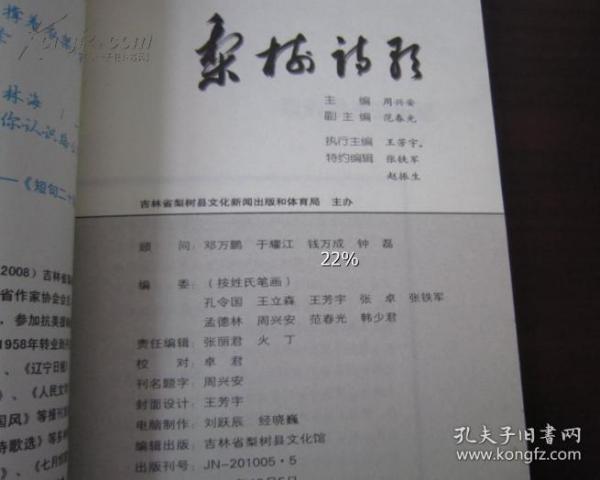 梨树诗歌
主 编 周兴安
副主编 范春光
执行主编 王芳宇
特约编辑 张铁军
赵振生
吉林省梨树县文化新闻出版和体育局 主办
顾 问: 邓万鹏 于耀江 钱万成 钟 磊
22%
编 委: (按姓氏笔画)
孔令国 王立森 王芳宇 张 卓 张铁军
孟德林 周兴安 范春光 韩少君
责任编辑: 张丽君 火 丁
校 对: 卓 君
刊名题字: 周兴安
封面设计: 王芳宇
电脑制作: 刘跃辰 经晓巍
编辑出版: 吉林省梨树县文化馆
出版刊号: JN-201005·5
林海
你认识
——《短句二十
2008) 吉林省
省作家协会会
参加抗美援
1958年转业
、《辽宁日报
、《人民文
国风》等报刊
诗歌选》等多
、《七月
孔夫子旧书网
www.kongfz.com